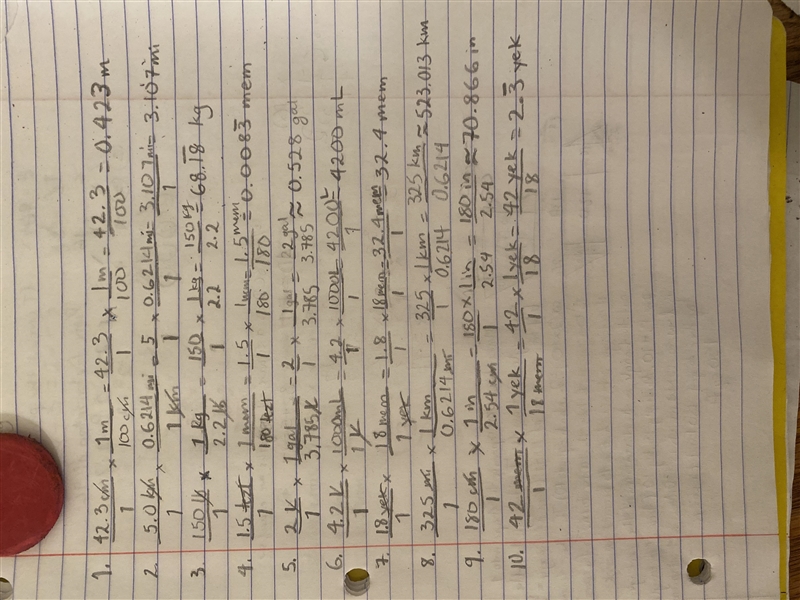 1. 42.3 cm/1 × 1 m/100 cm = 42.3/1 × 1 m/100 = 42.3/100 = 0.423 m
2. 5.0 km/1 × 0.6214 mi/1 km = 5/1 × 0.6214 mi/1 = 3.107 mi/1 = 3.107 mi
3. 150 lb/1 × 1 kg/2.2 lb = 150/1 × 1 kg/2.2 = 150 kg/2.2 = 68.1̅8̅ kg
4. 1.5 tozt/1 × 1 mem/180 tozt = 1.5/1 × 1 mem/180 = 1.5 mem/180 = 0.0083̅ mem
5. 2 L/1 × 1 gal/3.785 L = 2/1 × 1 gal/3.785 = 2 gal/3.785 ≈ 0.528 gal
6. 4.2 L/1 × 1000 mL/1 L = 4.2/1 × 1000 L/1 = 4200 L/1 = 4200 mL
7. 1.8 yek/1 × 18 mem/1 yek = 1.8/1 × 18 mem/1 = 32.4 mem/1 = 32.4 mem
8. 325 mi/1 × 1 km/0.6214 mi = 325/1 × 1 km/0.6214 = 325 km/0.6214 ≈ 523.013 km
9. 180 cm/1 × 1 in/2.54 cm = 180/1 × 1 in/2.54 = 180 in/2.54 ≈ 70.866 in
10. 42 mem/1 × 1 yek/18 mem = 42/1 × 1 yek/18 = 42 yek/18 = 2.3̅ yek